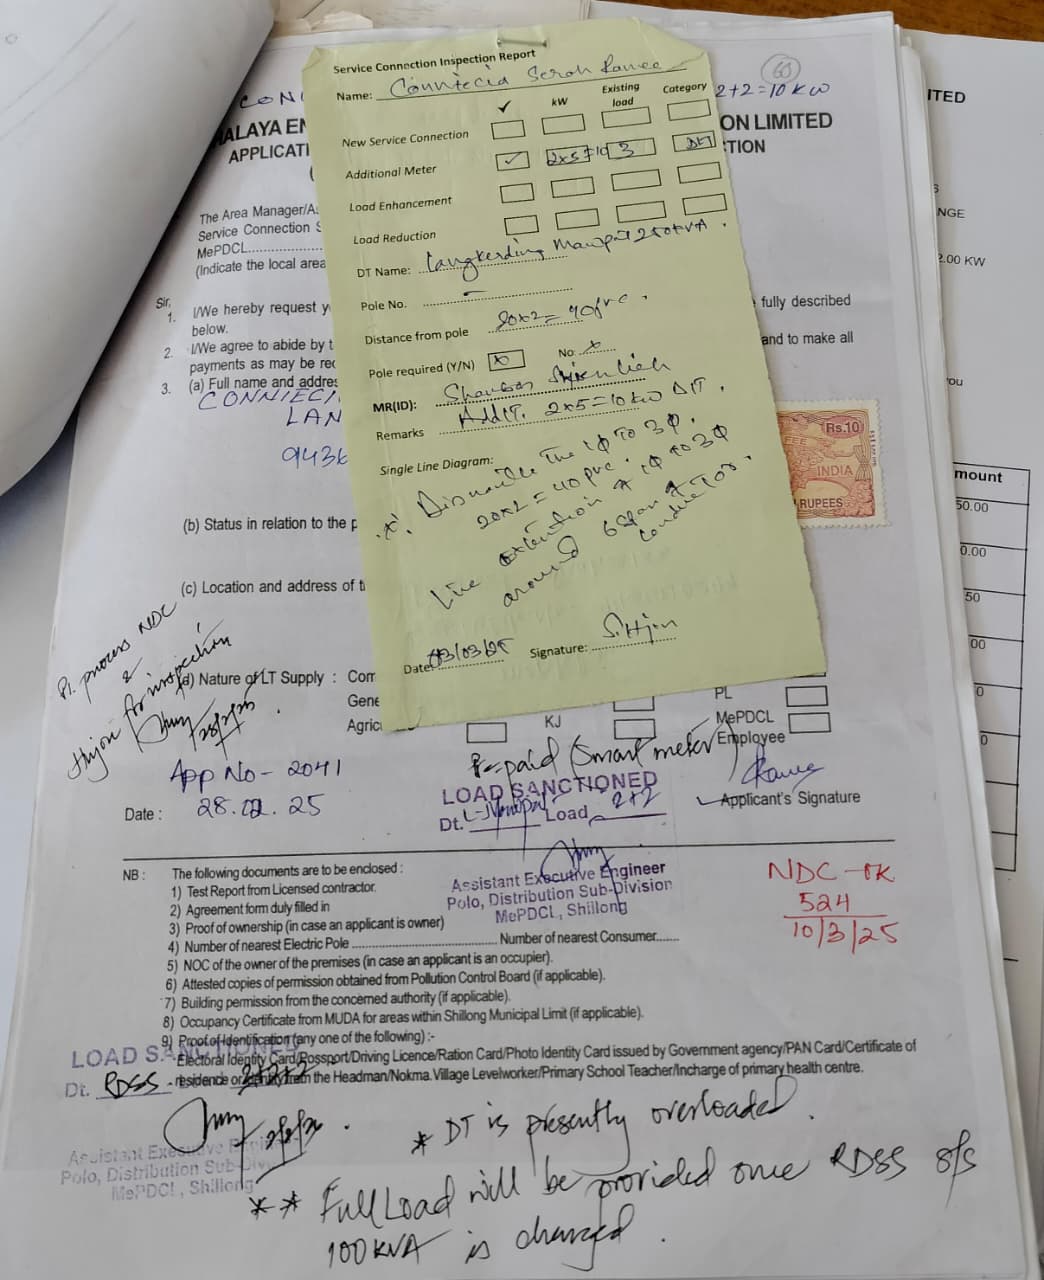 Service Connection Inspection Report
Name: Conniecia Serah Ranee
kW Existing load Category
New Service Connection
Additional Meter ✓ 2x5=10 3 DLT
Load Enhancement
Load Reduction
DT Name: Langkerding Mawpat 250kVA.
Pole No. –
Distance from pole 20x2=40 pvc.
Pole required (Y/N) x No: x
MR(ID):
Remarks Addt. 2x5=10 kW DLT.
Single Line Diagram:
Dismantle the 1φ TO 3φ.
20x2=40 pvc.
Line extention 1φ to 3φ
around 6 span of
conductor.
Date: 03/03/25 Signature: S. Hjon
60
CON
2+2=10 KW
ALAYA EN
ON LIMITED
APPLICATI
TION
The Area Manager/As
Service Connection S
MePDCL
(Indicate the local area
Sir,
1. I/We hereby request y
fully described
below.
2. I/We agree to abide by t
and to make all
payments as may be rec
3. (a) Full name and addres
CONNIECI
LAN
9436
Rs.10
FEE
INDIA
RUPEES
(b) Status in relation to the p
(c) Location and address of t
Pl. process NDC
&
Hjon for inspection
(d) Nature of LT Supply : Com
Gene
Agric
PL
KJ
MePDCL
Employee
Pre-paid (Smart meter)
App No - 2041
Date : 28.02.25
LOAD SANCTIONED
Dt. Load 2+2
Applicant's Signature
Assistant Executive Engineer
Polo, Distribution Sub-Division
MePDCL, Shillong
NDC - OK
524
10/3/25
NB : The following documents are to be enclosed :
1) Test Report from Licensed contractor.
2) Agreement form duly filled in
3) Proof of ownership (in case an applicant is owner)
4) Number of nearest Electric Pole Number of nearest Consumer
5) NOC of the owner of the premises (in case an applicant is an occupier).
6) Attested copies of permission obtained from Pollution Control Board (if applicable).
7) Building permission from the concerned authority (if applicable).
8) Occupancy Certificate from MUDA for areas within Shillong Municipal Limit (if applicable).
9) Proof of Identification (any one of the following) :-
Electoral Identity Card/Possport/Driving Licence/Ration Card/Photo Identity Card issued by Government agency/PAN Card/Certificate of
residence or Identity from the Headman/Nokma. Village Levelworker/Primary School Teacher/Incharge of primary health centre.
LOAD SANCTIONED
Dt. RDSS 2+2+2
Assistant Executive Engin
Polo, Distribution Sub-Divi
MePDCL, Shillong
* DT is presently overloaded.
** Full Load will be provided once RDSS S/S
100 KVA is charged.
ITED
NGE
2.00 KW
ou
mount
50.00
0.00
50
00
0
0